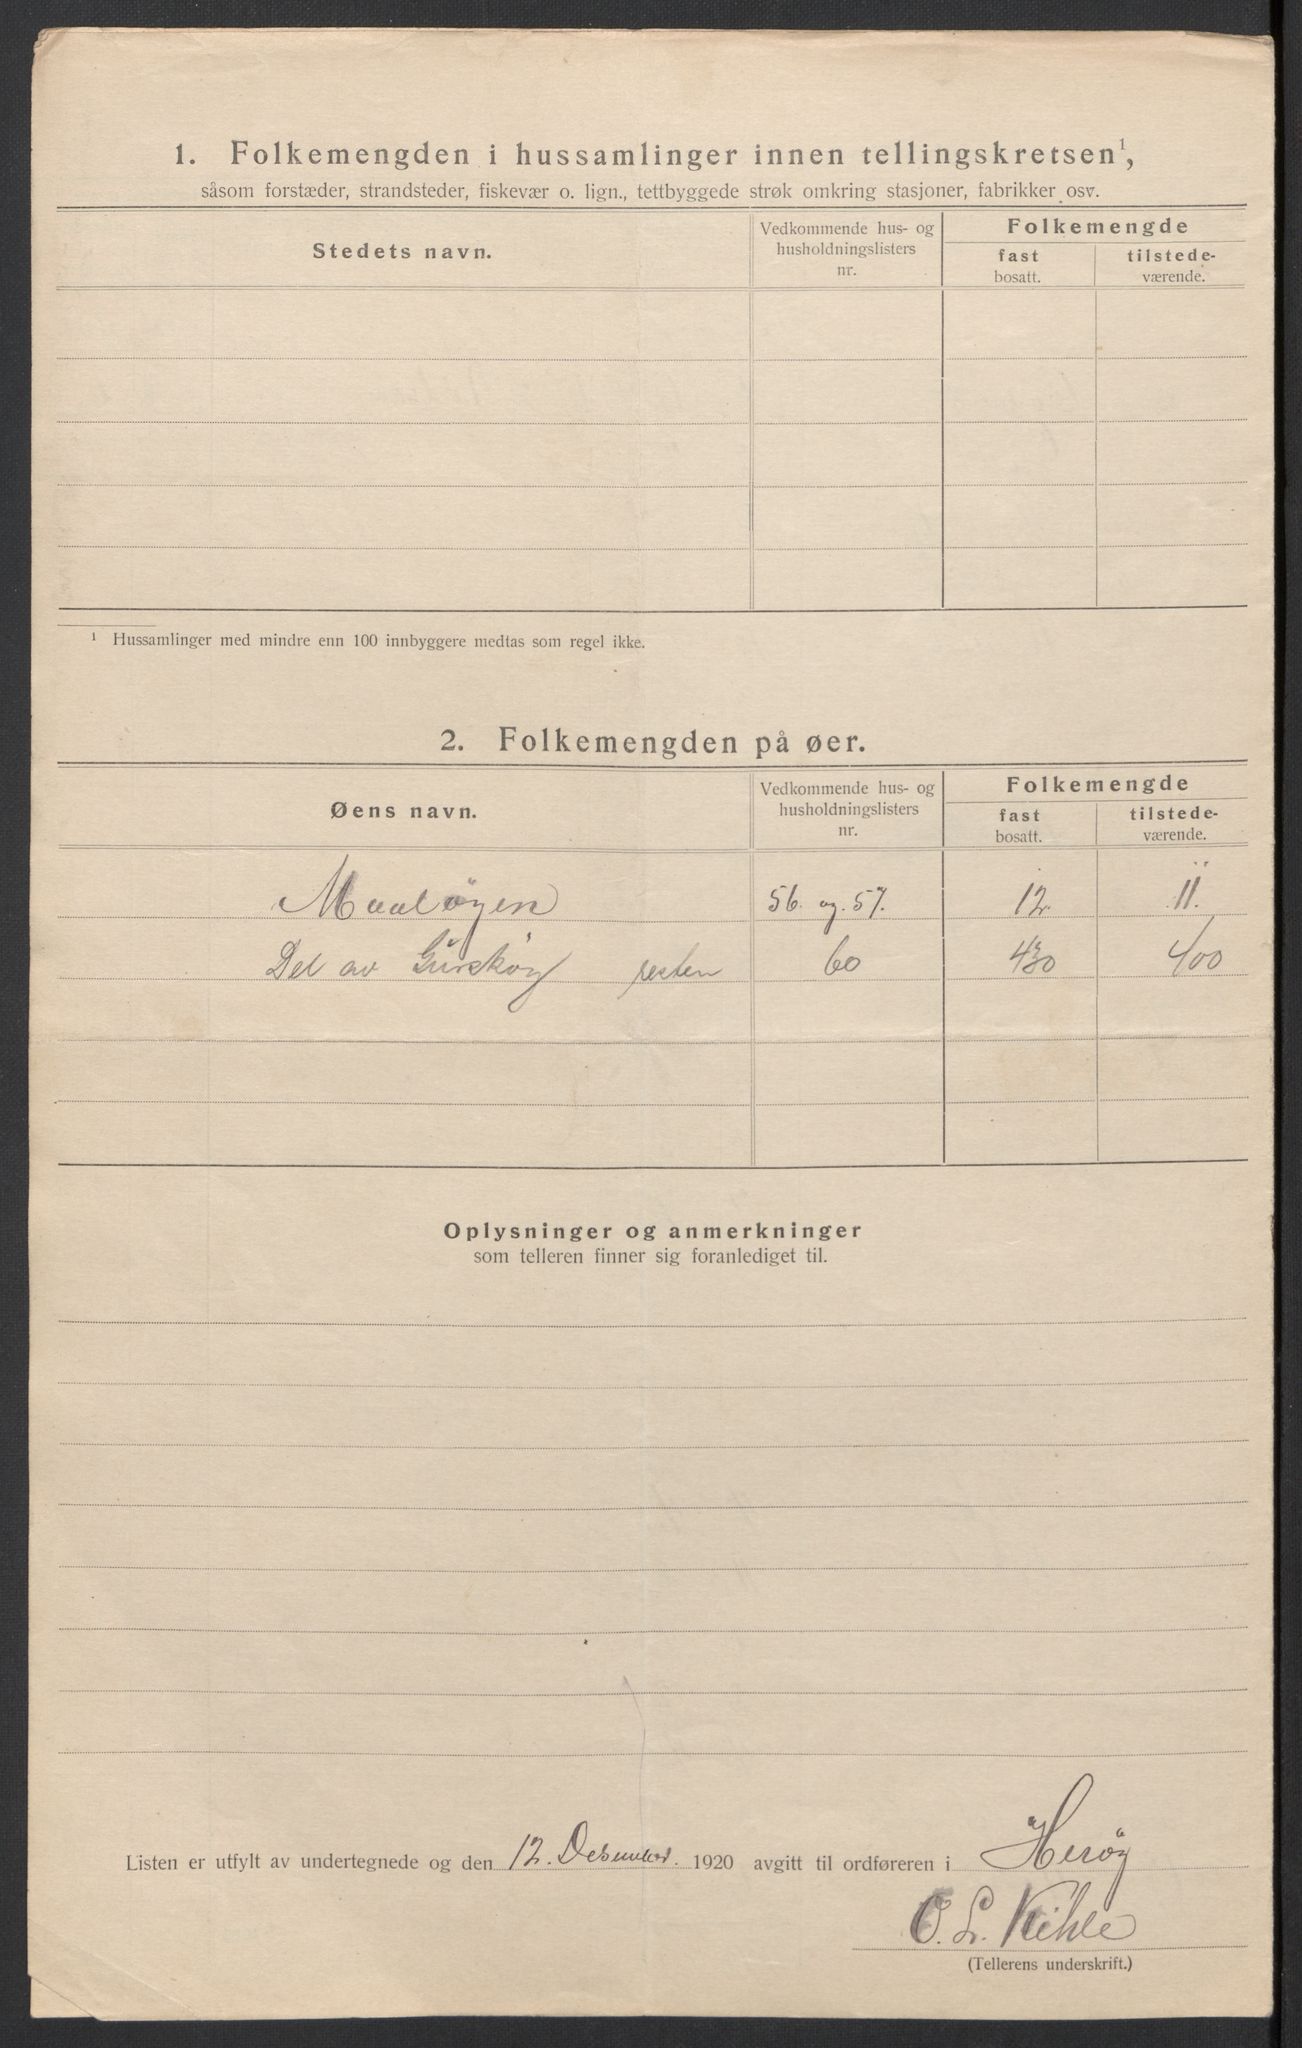 1. Folkemengden i hussamlinger innen tellingskretsen¹,
såsom forstæder, strandsteder, fiskevær o. lign., tettbyggede strøk omkring stasjoner, fabrikker osv.
Stedets navn.
Vedkommende hus- og husholdningslisters nr.
Folkemengde
fast bosatt.
tilstede-værende.
¹ Hussamlinger med mindre enn 100 innbyggere medtas som regel ikke.
2. Folkemengden på øer.
Øens navn.
Vedkommende hus- og husholdningslisters nr.
Folkemengde
fast bosatt.
tilstede-værende.
Maaløyen 56. og. 57. 12. 11.
Del av Gurskøy resten 60 430 400
Oplysninger og anmerkninger
som telleren finner sig foranlediget til.
Listen er utfylt av undertegnede og den 12. Desember. 1920 avgitt til ordføreren i Herøy
O. L. Kihle
(Tellerens underskrift.)